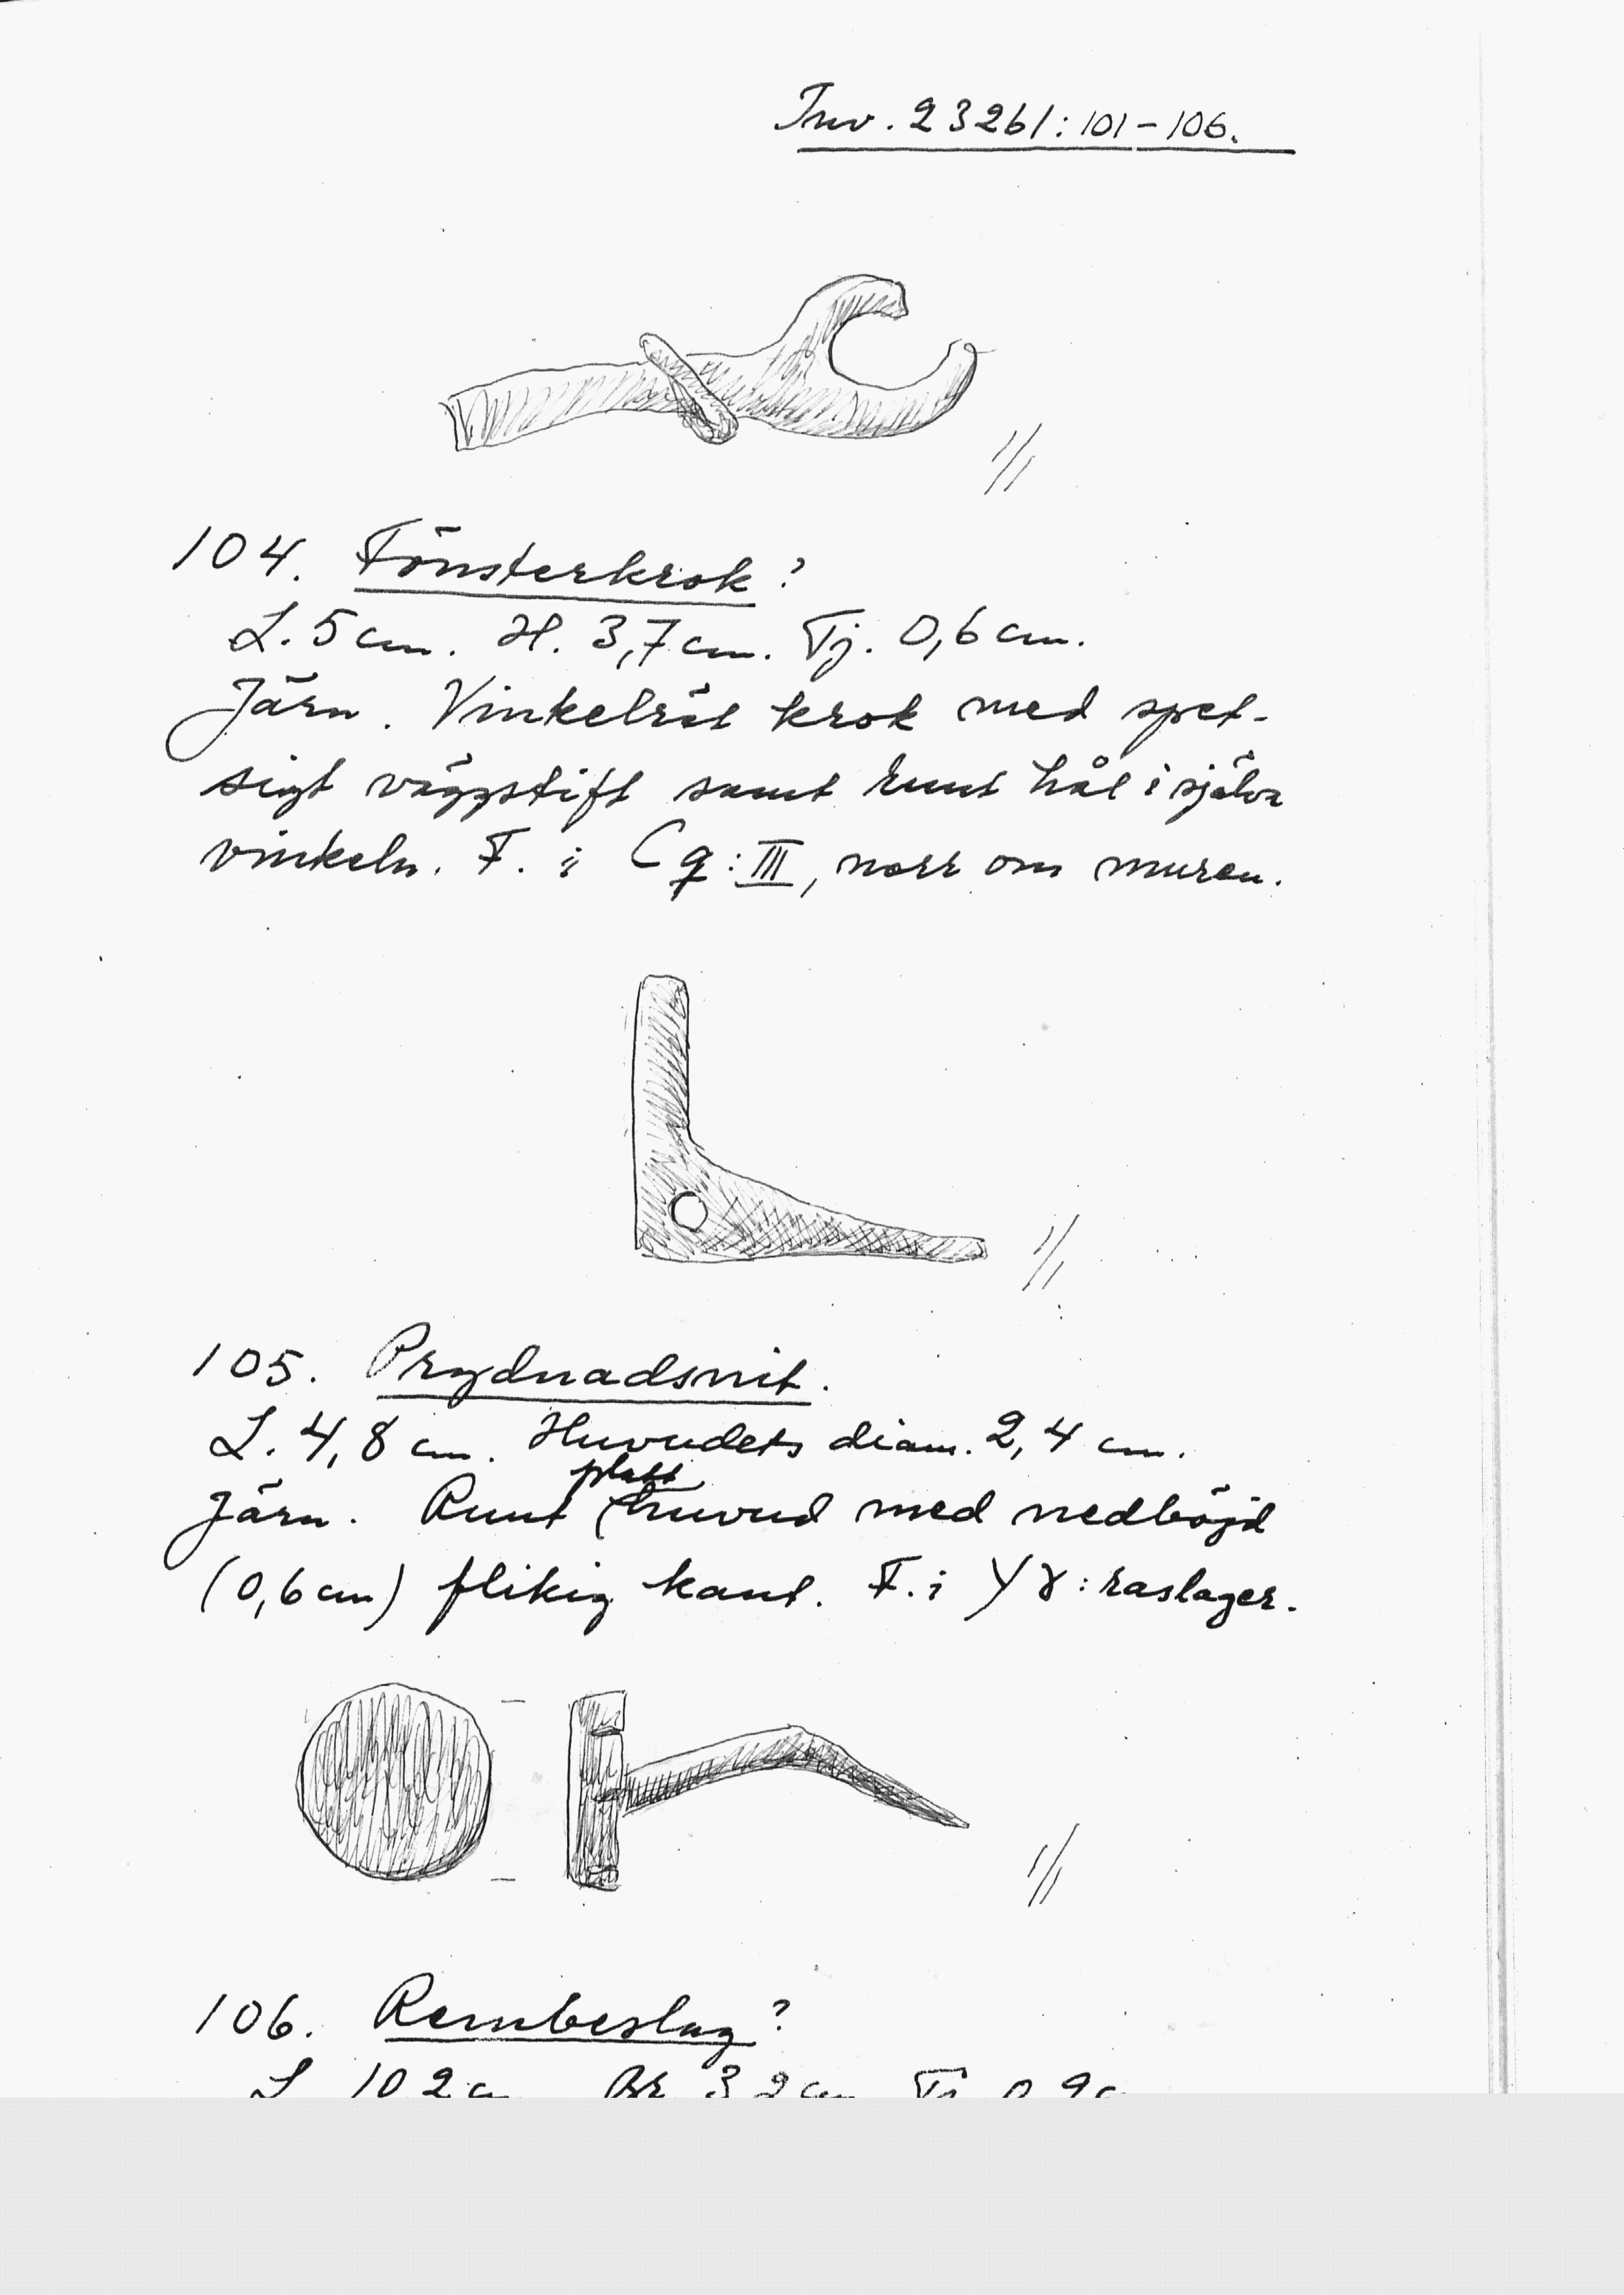 Inv. 23261:101-106.
1/1
104. Fönsterkrok?
L. 5 cm. H. 3,7 cm. Tj. 0,6 cm.
Järn. Vinkelrät krok med spet-
sigt väggstift samt runt hål i själva
vinkeln. F. i Cq:III, norr om muren.
1/1
105. Prydnadsnit.
L. 4,8 cm. Huvudets diam. 2,4 cm.
platt
Järn. Runt (huvud med nedböjd
(0,6 cm) flikig kant. F. i Yγ: raslager.
1/1
106. Rembeslag?
L 10 2 c Br 3 2 cm Tj 0 9 c